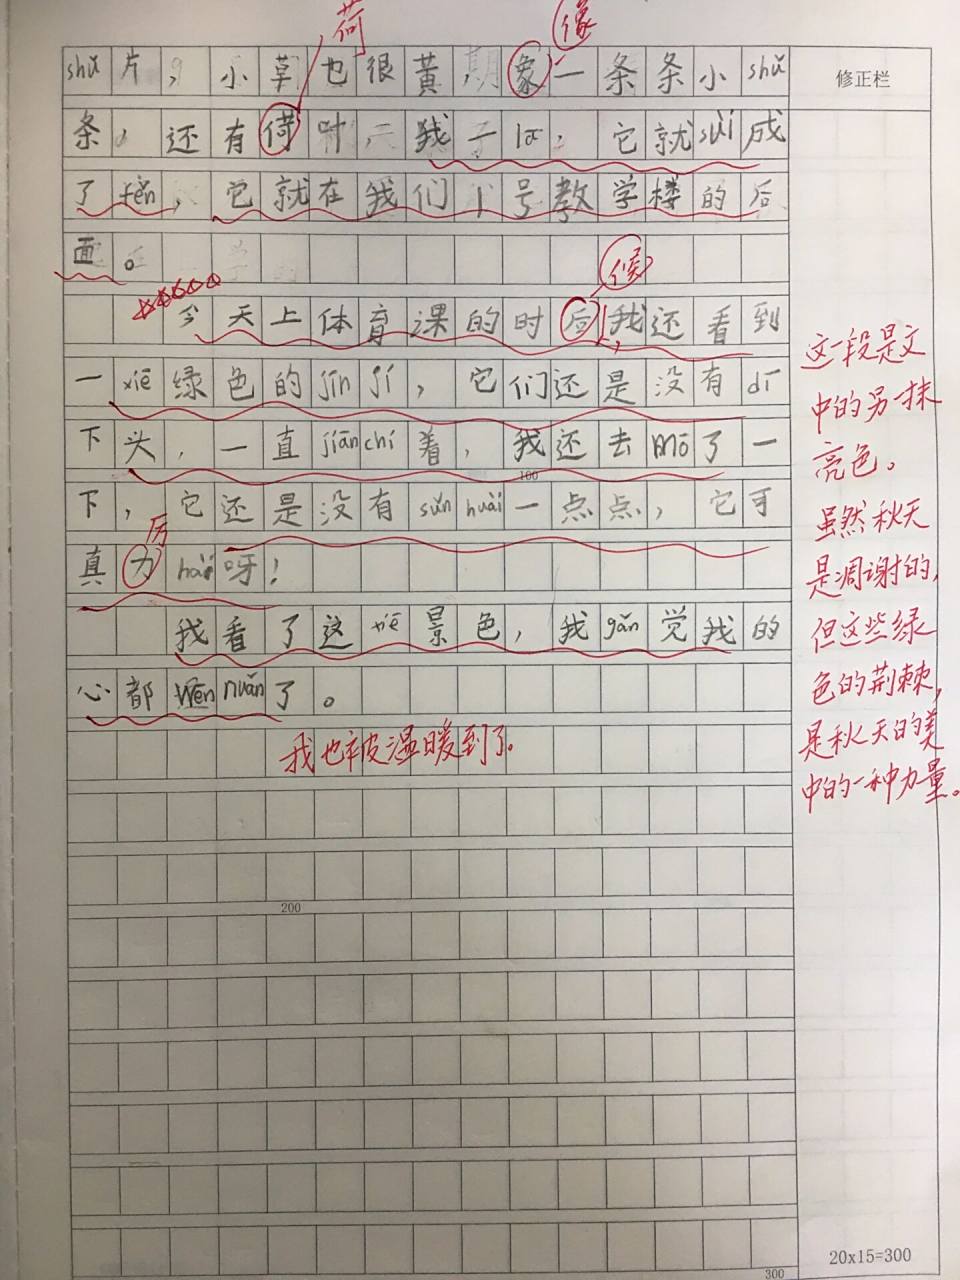 荷
像
shǔ片，小草也很黄，象一条条小shǔ
修正栏
条，还有荷叶，我一la，它就suì成
了fěn，它就在我们1号教学楼的后
面。
候
今天上体育课的时后，我还看到
一xiē绿色的jīn jí，它们还是没有dī
下头，一直jiān chí着，我还去mō了一
100
下，它还是没有sǔn huài一点点，它可
厉
真力hai呀！
我看了这xiē景色，我gǎn觉我的
心都wēn nuǎn了。
我也被温暖到了。
这一段是文
中的另一抹
亮色。
虽然秋天
是凋谢的，
但这些绿
色的荆棘，
是秋天的美
中的一种力量。
200
20x15=300
300